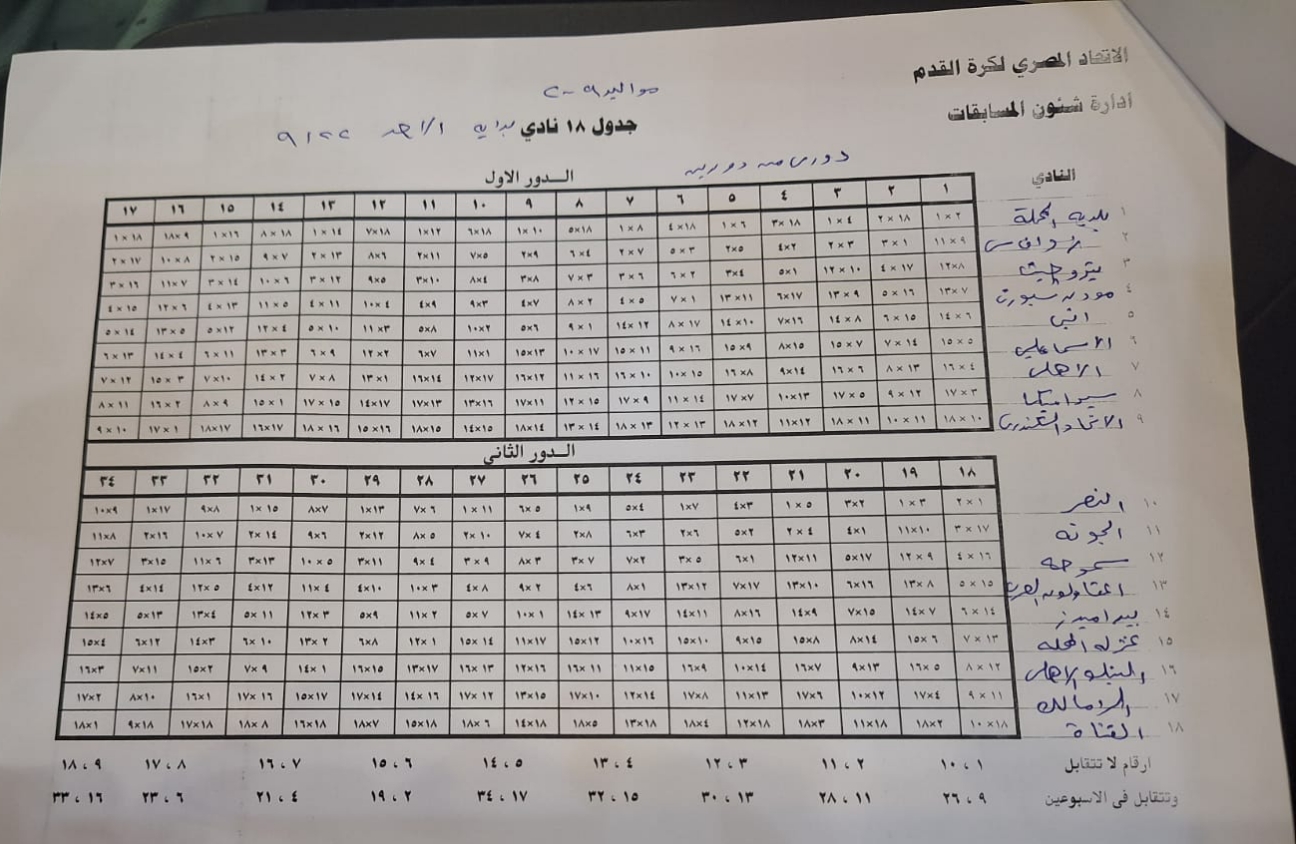 الاتحاد المصري لكرة القدم
أدارة شئون المسابقات
مواليد ٢٠٠٩
جدول ١٨ نادي بدايه الاحد ٩/٢٢
دورى من دورين
النادي الـدور الاول
١ ٢ ٣ ٤ ٥ ٦ ٧ ٨ ٩ ١٠ ١١ ١٢ ١٣ ١٤ ١٥ ١٦ ١٧
١ بلديه المحلة ١×٢ ٢×١٨ ١×٤ ٣×١٨ ١×٦ ٤×١٨ ١×٨ ٥×١٨ ١×١٠ ٦×١٨ ١×١٢ ٧×١٨ ١×١٤ ٨×١٨ ١×١٦ ١٨×٩ ١×١٨
٢ ١١×٩ ٣×١ ٣×٢ ٤×٢ ٢×٥ ٥×٣ ٢×٧ ٦×٤ ٢×٩ ٧×٥ ٢×١١ ٨×٦ ٢×١٣ ٩×٧ ٢×١٥ ١٠×٨ ٢×١٧
٣ بتروجيت ١٢×٨ ٤×١٧ ١٢×١٠ ٥×١ ٤×٣ ٦×٢ ٦×٣ ٧×٣ ٣×٨ ٨×٤ ٣×١٠ ٩×٥ ٣×١٢ ١٠×٦ ٣×١٤ ١١×٧ ٣×١٦
٤ مودرن سبورت ١٣×٧ ٥×١٦ ١٣×٩ ٦×١٧ ١٣×١١ ٧×١ ٤×٥ ٨×٢ ٤×٧ ٩×٣ ٤×٩ ١٠×٤ ٤×١١ ١١×٥ ٤×١٣ ١٢×٦ ٤×١٥
٥ انبى ١٤×٦ ٦×١٥ ١٤×٨ ٧×١٦ ١٤×١٠ ٨×١٧ ١٤×١٢ ٩×١ ٥×٦ ١٠×٢ ٥×٨ ١١×٣ ٥×١٠ ١٢×٤ ٥×١٢ ١٣×٥ ٥×١٤
٦ الاسماعيلى ١٥×٥ ٧×١٤ ١٥×٧ ٨×١٥ ١٥×٩ ٩×١٦ ١٥×١١ ١٠×١٧ ١٥×١٣ ١١×١ ٦×٧ ١٢×٢ ٦×٩ ١٣×٣ ٦×١١ ١٤×٤ ٦×١٣
٧ الاهلى ١٦×٤ ٨×١٣ ١٦×٦ ٩×١٤ ١٦×٨ ١٠×١٥ ١٦×١٠ ١١×١٦ ١٦×١٢ ١٢×١٧ ١٦×١٤ ١٣×١ ٧×٨ ١٤×٢ ٧×١٠ ١٥×٣ ٧×١٢
٨ سيراميكا ١٧×٣ ٩×١٢ ١٧×٥ ١٠×١٣ ١٧×٧ ١١×١٤ ١٧×٩ ١٢×١٥ ١٧×١١ ١٣×١٦ ١٧×١٣ ١٤×١٧ ١٧×١٥ ١٥×١ ٨×٩ ١٦×٢ ٨×١١
٩ الاتحاد السكندرى ١٨×١٠ ١٠×١١ ١٨×١١ ١١×١٢ ١٨×١٢ ١٢×١٣ ١٨×١٣ ١٣×١٤ ١٨×١٤ ١٤×١٥ ١٨×١٥ ١٥×١٦ ١٨×١٦ ١٦×١٧ ١٨×١٧ ١٧×١ ٩×١٠
الـدور الثاني
١٨ ١٩ ٢٠ ٢١ ٢٢ ٢٣ ٢٤ ٢٥ ٢٦ ٢٧ ٢٨ ٢٩ ٣٠ ٣١ ٣٢ ٣٣ ٣٤
١٠ النصر ٢×١ ١×٣ ٣×٢ ١×٥ ٤×٣ ١×٧ ٥×٤ ١×٩ ٦×٥ ١×١١ ٧×٦ ١×١٣ ٨×٧ ١×١٥ ٩×٨ ١×١٧ ١٠×٩
١١ الجونه ٣×١٧ ١١×١٠ ٤×١ ٢×٤ ٥×٢ ٢×٦ ٦×٣ ٢×٨ ٧×٤ ٢×١٠ ٨×٥ ٢×١٢ ٩×٦ ٢×١٤ ١٠×٧ ٢×١٦ ١١×٨
١٢ سموحه ٤×١٦ ١٢×٩ ٥×١٧ ١٢×١١ ٦×١ ٣×٥ ٧×٢ ٣×٧ ٨×٣ ٣×٩ ٩×٤ ٣×١١ ١٠×٥ ٣×١٣ ١١×٦ ٣×١٥ ١٢×٧
١٣ المقاولون العرب ٥×١٥ ١٣×٨ ٦×١٦ ١٣×١٠ ٧×١٧ ١٣×١٢ ٨×١ ٤×٦ ٩×٢ ٤×٨ ١٠×٣ ٤×١٠ ١١×٤ ٤×١٢ ١٢×٥ ٤×١٤ ١٣×٦
١٤ بيراميدز ٦×١٤ ١٤×٧ ٧×١٥ ١٤×٩ ٨×١٦ ١٤×١١ ٩×١٧ ١٤×١٣ ١٠×١ ٥×٧ ١١×٢ ٥×٩ ١٢×٣ ٥×١١ ١٣×٤ ٥×١٣ ١٤×٥
١٥ غزل المحله ٧×١٣ ١٥×٦ ٨×١٤ ١٥×٨ ٩×١٥ ١٥×١٠ ١٠×١٦ ١٥×١٢ ١١×١٧ ١٥×١٤ ١٢×١ ٦×٨ ١٣×٢ ٦×١٠ ١٤×٣ ٦×١٢ ١٥×٤
١٦ البنك الاهلى ٨×١٢ ١٦×٥ ٩×١٣ ١٦×٧ ١٠×١٤ ١٦×٩ ١١×١٥ ١٦×١١ ١٢×١٦ ١٦×١٣ ١٣×١٧ ١٦×١٥ ١٤×١ ٧×٩ ١٥×٢ ٧×١١ ١٦×٣
١٧ الزمالك ٩×١١ ١٧×٤ ١٠×١٢ ١٧×٦ ١١×١٣ ١٧×٨ ١٢×١٤ ١٧×١٠ ١٣×١٥ ١٧×١٢ ١٤×١٦ ١٧×١٤ ١٥×١٧ ١٧×١٦ ١٦×١ ٨×١٠ ١٧×٢
١٨ القناة ١٠×١٨ ١٨×٢ ١١×١٨ ١٨×٣ ١٢×١٨ ١٨×٤ ١٣×١٨ ١٨×٥ ١٤×١٨ ١٨×٦ ١٥×١٨ ١٨×٧ ١٦×١٨ ١٨×٨ ١٧×١٨ ٩×١٨ ١٨×١
ارقام لا تتقابل ١ ، ١٠ ٢ ، ١١ ٣ ، ١٢ ٤ ، ١٣ ٥ ، ١٤ ٦ ، ١٥ ٧ ، ١٦ ٨ ، ١٧ ٩ ، ١٨
وتتقابل فى الاسبوعين ٩ ، ٢٦ ١١ ، ٢٨ ١٣ ، ٣٠ ١٥ ، ٣٢ ١٧ ، ٣٤ ٢ ، ١٩ ٤ ، ٢١ ٦ ، ٢٣ ١٦ ، ٣٣